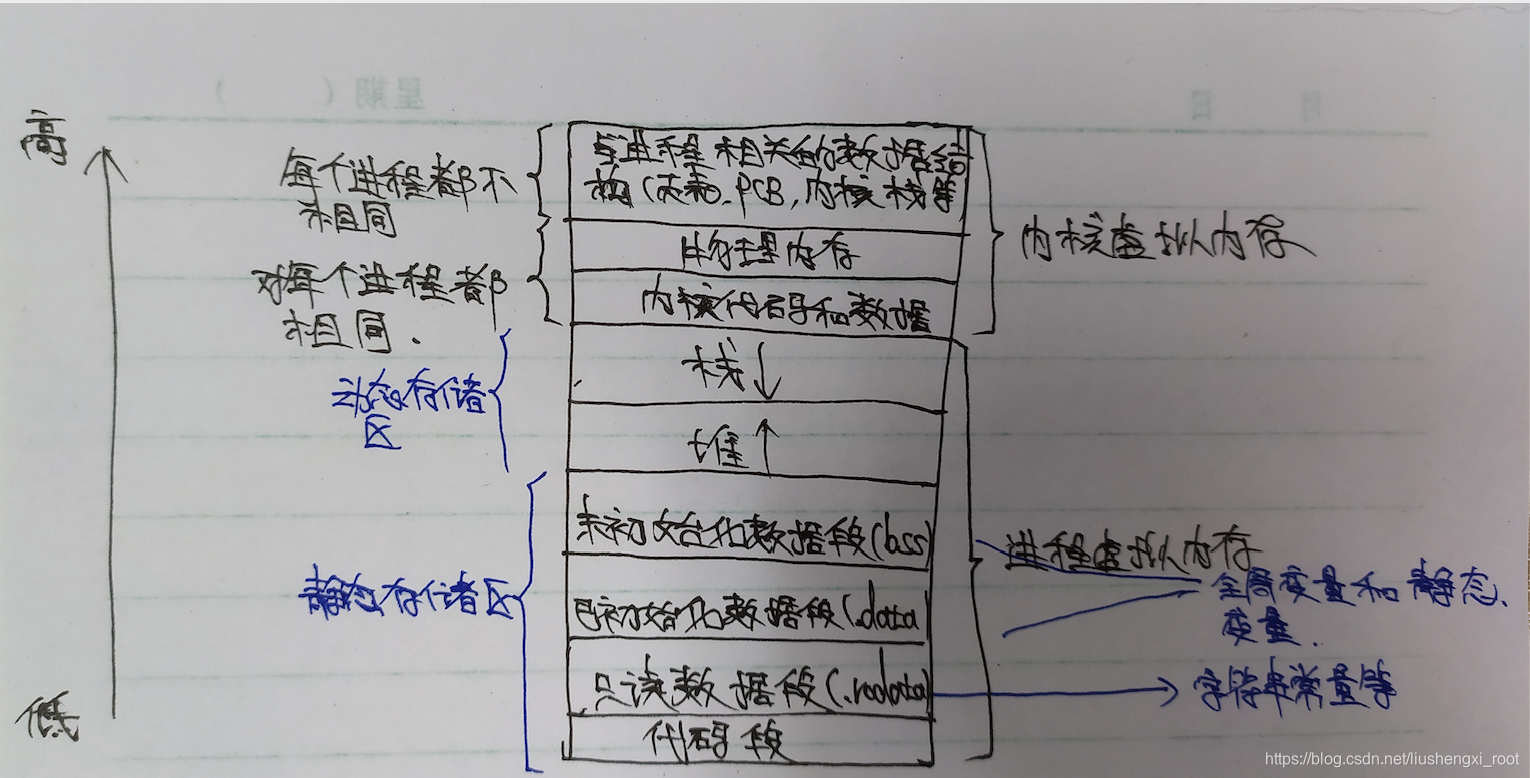 星期（ ）
月 日
高
每个进程都不
相同
与进程相关的数据结
构(页表、PCB,内核栈等
物理内存
内核虚拟内存
对每个进程都
相同.
内核代码和数据
栈↓
动态存储
区
堆↑
未初始化数据段(bss)
进程虚拟内存
静态存储区
全局变量和静态、
变量.
已初始化数据段(.data)
只读数据段(.rodata)
字符串常量等
低
代码段
https://blog.csdn.net/liushengxi_root